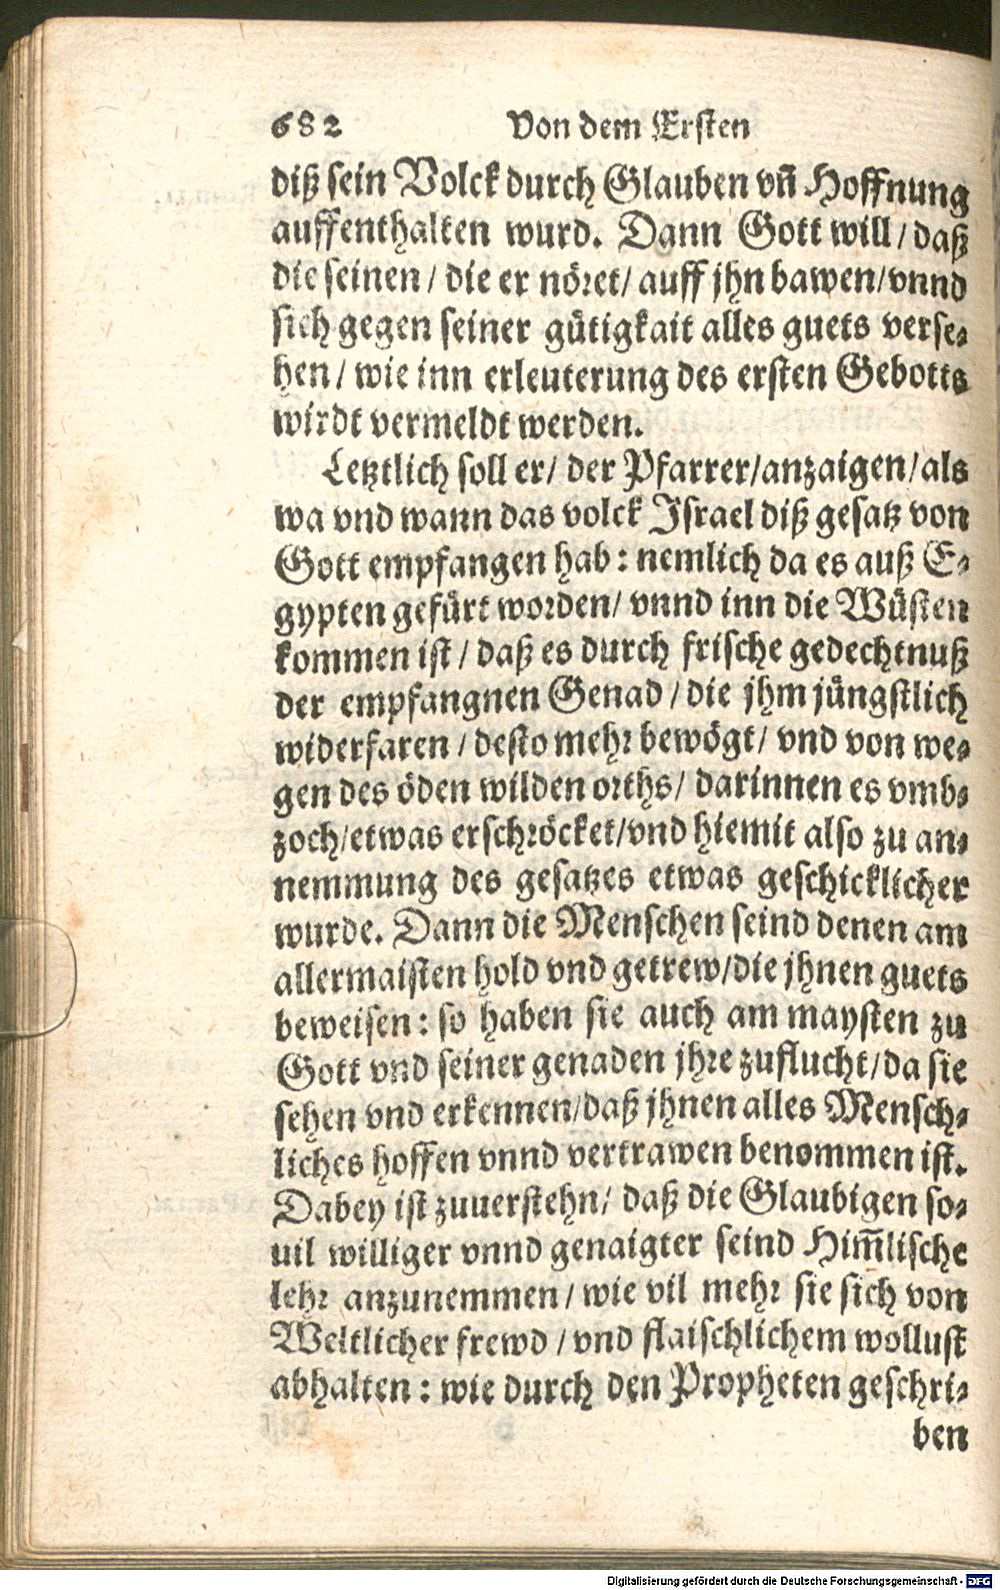 682 Von dem Ersten
diß sein Volck durch Glauben vn̄ Hoffnung
auffenthalten wurd. Dann Gott will / daß
die seinen / die er nöret / auff jhn bawen / vnnd
sich gegen seiner gütigkait alles guets verse⸗
hen / wie inn erleuterung des ersten Gebotts
wirdt vermeldt werden.
Letztlich soll er / der Pfarrer / anzaigen / als
wa vnd wann das volck Israel diß gesatz von
Gott empfangen hab : nemlich da es auß E⸗
gypten gefürt worden / vnnd inn die Wüsten
kommen ist / daß es durch frische gedechtnuß
der empfangnen Genad / die jhm jüngstlich
widerfaren / desto mehr bewögt / vnd von we⸗
gen des öden wilden orths / darinnen es vmb⸗
zoch / etwas erschröcket / vnd hiemit also zu an⸗
nemmung des gesatzes etwas geschicklicher
wurde. Dann die Menschen seind denen am
allermaisten hold vnd getrew / die jhnen guets
beweisen : so haben sie auch am maysten zu
Gott vnd seiner genaden jhre zuflucht / da sie
sehen vnd erkennen / daß jhnen alles Mensch⸗
liches hoffen vnnd vertrawen benommen ist.
Dabey ist zuuerstehn / daß die Glaubigen so⸗
uil williger vnnd genaigter seind Him̄lische
lehr anzunemmen / wie vil mehr sie sich von
Weltlicher frewd / vnd flaischlichem wollust
abhalten : wie durch den Propheten geschri⸗
ben
Digitalisierung gefördert durch die Deutsche Forschungsgemeinschaft - DFG